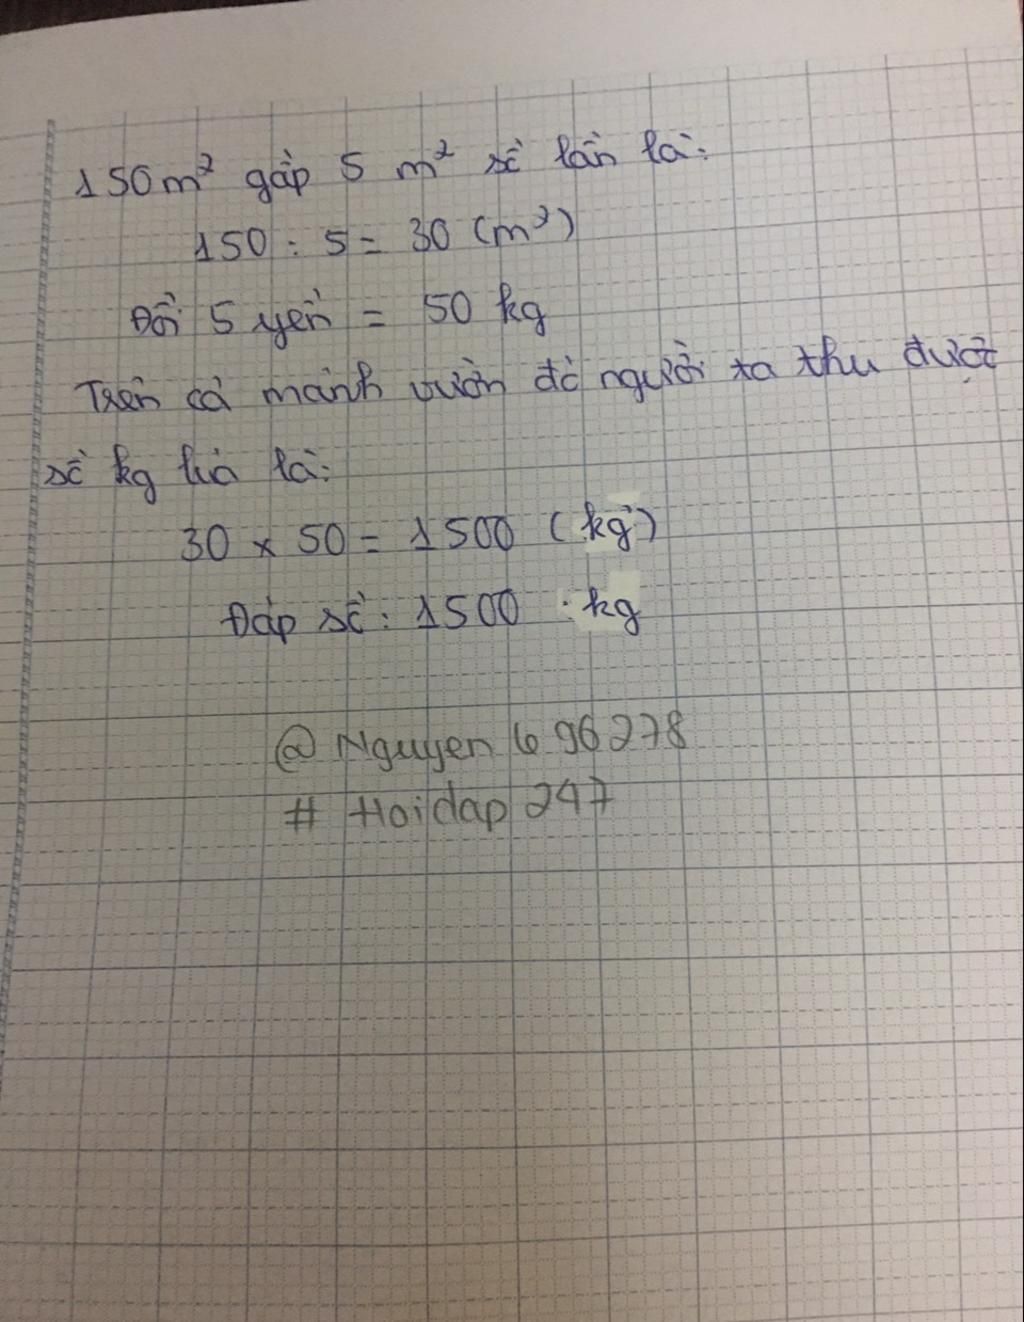 150m² gấp 5 m² số lần là:
150 : 5 = 30 (m²)
Đổi 5 yến = 50 kg
Trên cả mảnh vườn đó người ta thu được
số kg lúa là:
30 x 50 = 1500 (kg)
Đáp số: 1500 kg
@Nguyen 696278
# Hoidap 247